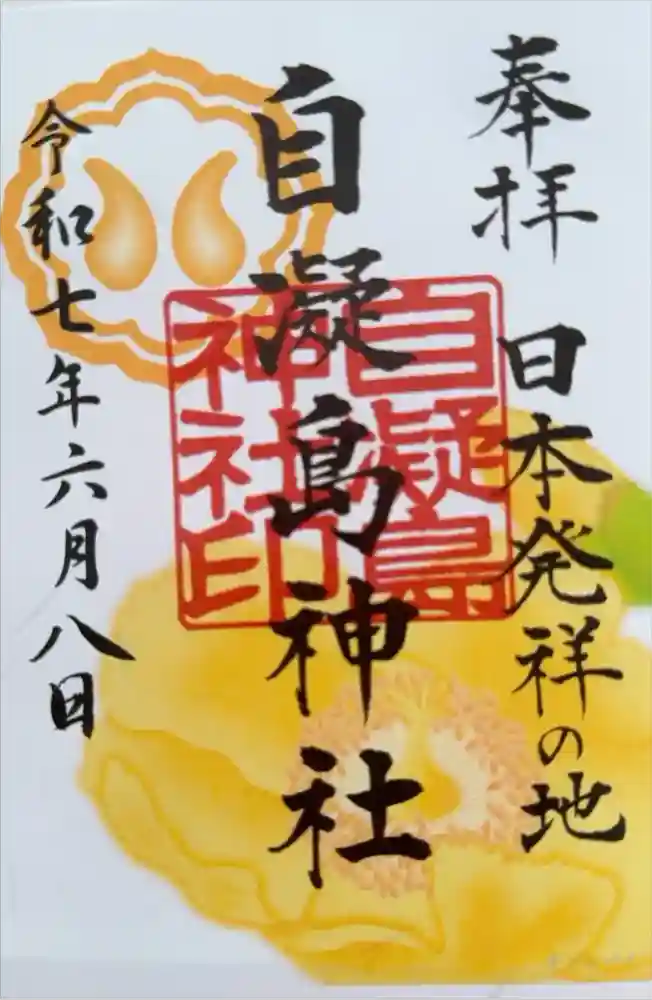 奉拝
日本発祥の地
自凝島神社
自凝島
神社印
令和七年六月八日